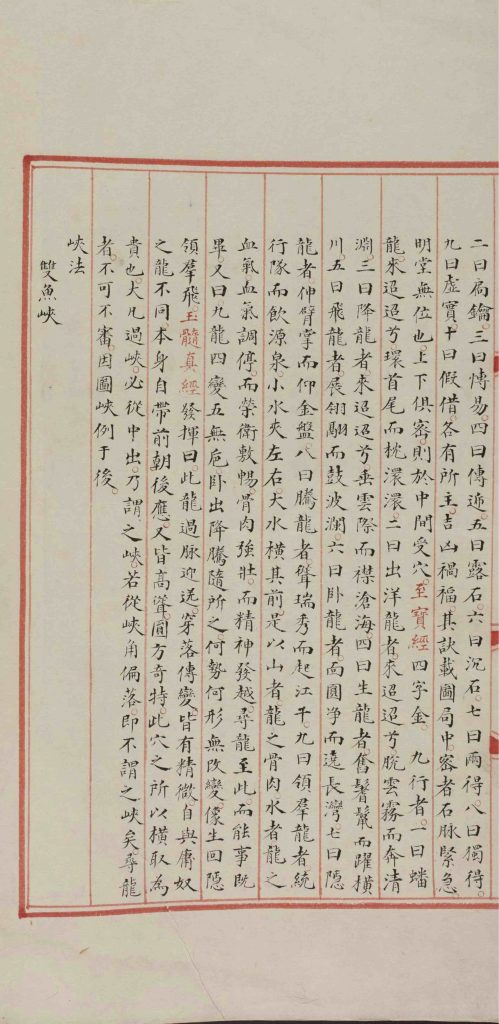 二曰扄鑰。三曰慱易。四曰傳近。五曰露石。六曰沉石。七曰兩得。八曰獨得。
九曰虛實。十曰假借。各有所主。吉凶禍福。其訣載圖局中。密者石脉緊急。
明堂無位也。上下俱密。則於中間受穴。至寶經四字金。九行者。一曰蟠
龍。來迢迢兮環首尾而枕瀠瀠。二曰出洋龍者。來迢迢兮脫雲霧而奔清
淵。三曰降龍者。來迢迢兮垂雲際而襟滄海。四曰生龍者。奮鬐鬣而躍橫
川。五曰飛龍者。展翎翮而鼓波瀾。六曰卧龍者。面圓净而遶長灣。七曰隱
龍者伸臂掌而仰金盤。八曰騰龍者聳瑞秀而起江干。九曰領羣龍者統
行隊而飲源泉。小水夾左右。大水橫其前。是以山者龍之骨肉。水者龍之
血氣。血氣調停。而榮衛敷暢。骨肉強壯。而精神發越。尋龍至此。而能事既
畢。又曰九龍四變五無危。卧出降騰隨所之。何勢何形無改變。像生回隱
領羣飛。玉髓真經發揮曰。此龍過脉迎送。穿落傳變。皆有精微。自與庸奴
之龍不同。本身自帶前朝後應。又皆高聳。圓方奇特。此穴之所以橫取為
貴也。大凡過峽。必從中出。乃謂之峽。若從峽角偏落。即不謂之峽矣。尋龍
者。不可不審。因圖峽例于後。
峽法
雙魚峽